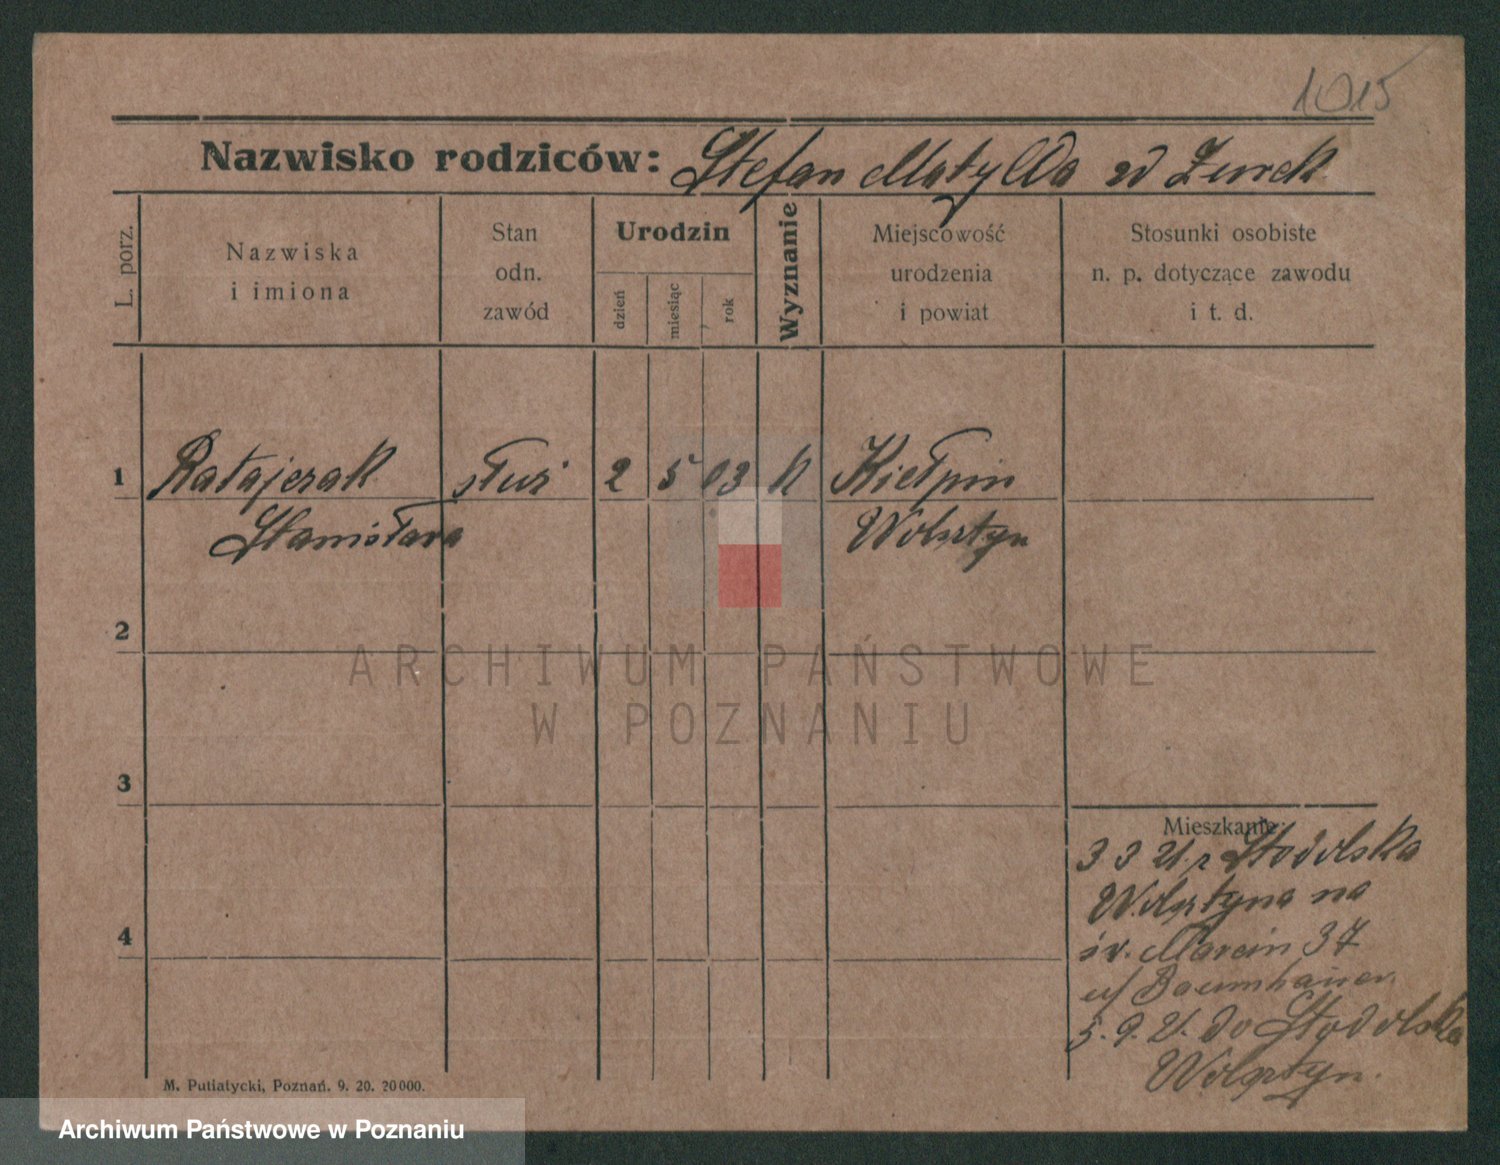 1015
Nazwisko rodziców: Stefan Matylda zd Żurek
L. porz.
Nazwiska
i imiona
Stan
odn.
zawód
Urodzin
dzień
miesiąc
rok
Wyznanie
Miejscowość
urodzenia
i powiat
Stosunki osobiste
n. p. dotyczące zawodu
i t. d.
1 Ratajczak służ 2 5 03 k Kiełpin
Stanisława Wolsztyn
2
ARCHIWUM PAŃSTWOWE
W POZNANIU
3
4
Mieszkanie:
3 3 21 z Stodolska
Wolsztyna na
św. Marcin 37
u/ Baumhauer.
5. 9. 21. do Stodolska
Wolsztyn.
M. Putiatycki, Poznań. 9. 20. 20000.
Archiwum Państwowe w Poznaniu